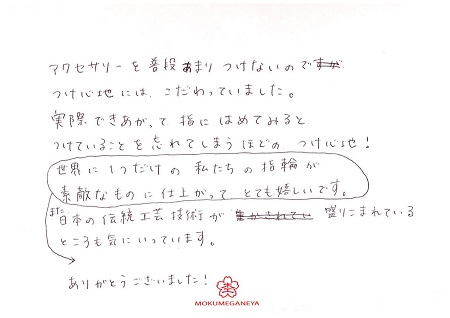 アクセサリーを普段あまりつけないのですが
つけ心地には、こだわっていました。
実際できあがって指にはめてみると
つけていることを忘れてしまうほどのつけ心地!
世界に1つだけの私たちの指輪が
素敵なものに仕上がってとても嬉しいです。
また
日本の伝統工芸技術が 盛りこまれている
ところも気にいっています。
ありがとうございました!
MOKUMEGANEYA